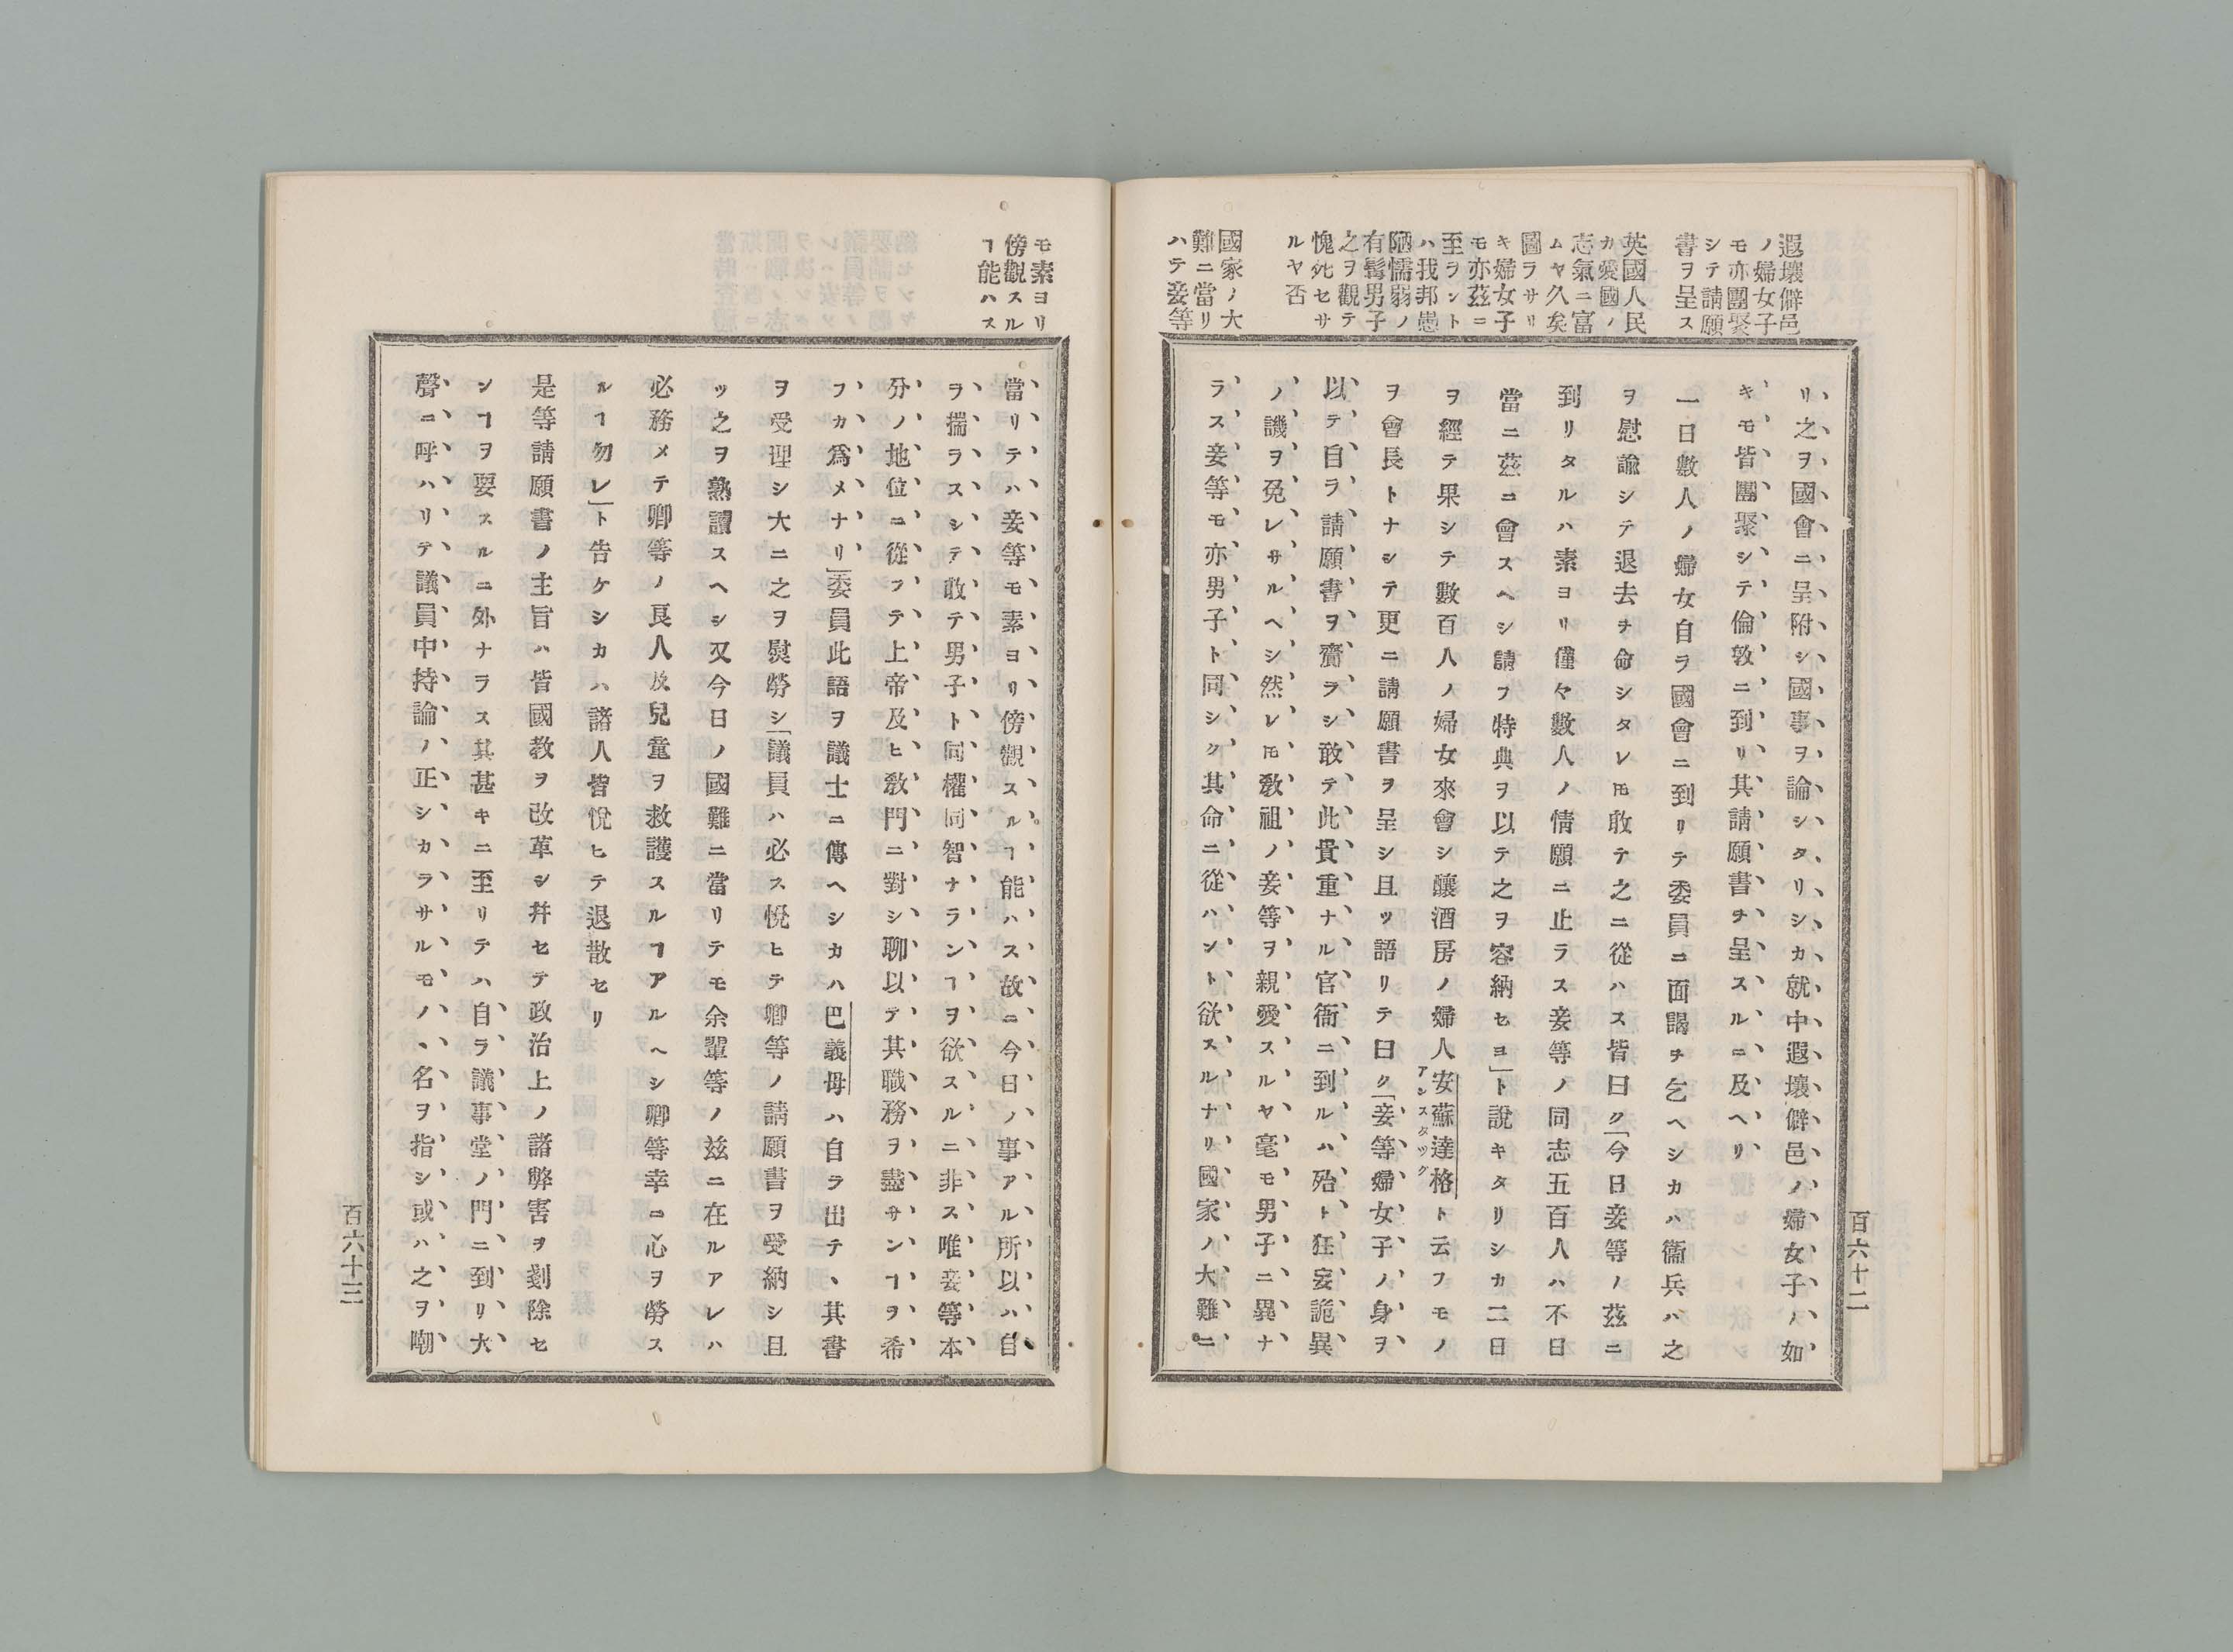 遐壤僻邑
ノ婦女子
モ亦團聚
シテ請願
書ヲ呈ス
英國人民
カ愛國ノ
志氣ニ富
ムヤ久矣
圖ラサリ
キ婦女子
モ亦茲ニ
至ヲントハ
我邦愚
陋懦弱ノ
有髯男子
之ヲ觀テ
愧死セサ
ルヤ否
國家ノ大
難ニ當リ
ハテ妾等
リ之ヲ國會ニ呈附シ國事ヲ論シタリシカ就中遐壤僻邑ノ婦女子ノ如
キモ皆團聚シテ倫敦ニ到リ其請願書ヲ呈スルニ及ヘリ
一日數人ノ婦女自ラ國會ニ到リテ委員ニ面謁ヲ乞ヘシカハ衞兵ハ之
ヲ慰諭シテ退去ヲ命シタレ𪜈敢テ之ニ從ハス皆曰ク「今日妾等ノ茲ニ
到リタルハ素ヨリ僅々數人ノ情願ニ止ラス妾等ノ同志五百人ハ不日
當ニ茲ニ會スヘシ請フ特典ヲ以テ之ヲ容納セヨ」ト說キタリシカ二日
ヲ經テ果シテ數百人ノ婦女來會シ釀酒房ノ婦人安蘇達格アンスタッグト云フモノ
ヲ會長トナシテ更ニ請願書ヲ呈シ且ツ語リテ曰ク「妾等婦女子ノ身ヲ
以テ自ラ請願書ヲ齎ラシ敢テ此貴重ナル官衙ニ到ルハ殆ト狂妄詭異
ノ譏ヲ免レサルヘシ然レ𪜈敎祖ノ妾等ヲ親愛スルヤ毫モ男子ニ異ナ
ラス妾等モ亦男子ト同シク其命ニ從ハント欲スルナリ國家ノ大難ニ
百六十二
モ素ヨリ
傍觀スル
ヿ能ハス
當リテハ妾等モ素ヨリ傍觀スルヿ能ハス故ニ今日ノ事アル所以ハ自
ラ揣ラスシテ敢テ男子ト同權同智ナランヿヲ欲スルニ非ス唯妾等本
分ノ地位ニ從フテ上帝及ヒ敎門ニ對シ聊以テ其職務ヲ盡サンヿヲ希
フカ爲メナリ」委員此語ヲ議士ニ傳ヘシカハ巴義母ハ自ラ出テヽ其書
ヲ受理シ大ニ之ヲ慰勞シ「議員ハ必ス悅ヒテ卿等ノ請願書ヲ受納シ且
ツ之ヲ熟讀スヘシ又今日ノ國難ニ當リテモ余輩等ノ茲ニ在ルアレハ
必務メテ卿等ノ良人及兒童ヲ救護スルヿアルヘシ卿等幸ニ心ヲ勞ス
ルヿ勿レ」ト告ケシカハ諸人皆悅ヒテ退散セリ
是等請願書ノ主旨ハ皆國教ヲ改革シ幷セテ政治上ノ諸弊害ヲ剗除セ
ンヿヲ要スルニ外ナラス其甚キニ至リテハ自ラ議事堂ノ門ニ到リ大
聲ニ呼ハリテ議員中持論ノ正シカラサルモノヽ名ヲ指シ或ハ之ヲ嘲
百六十三